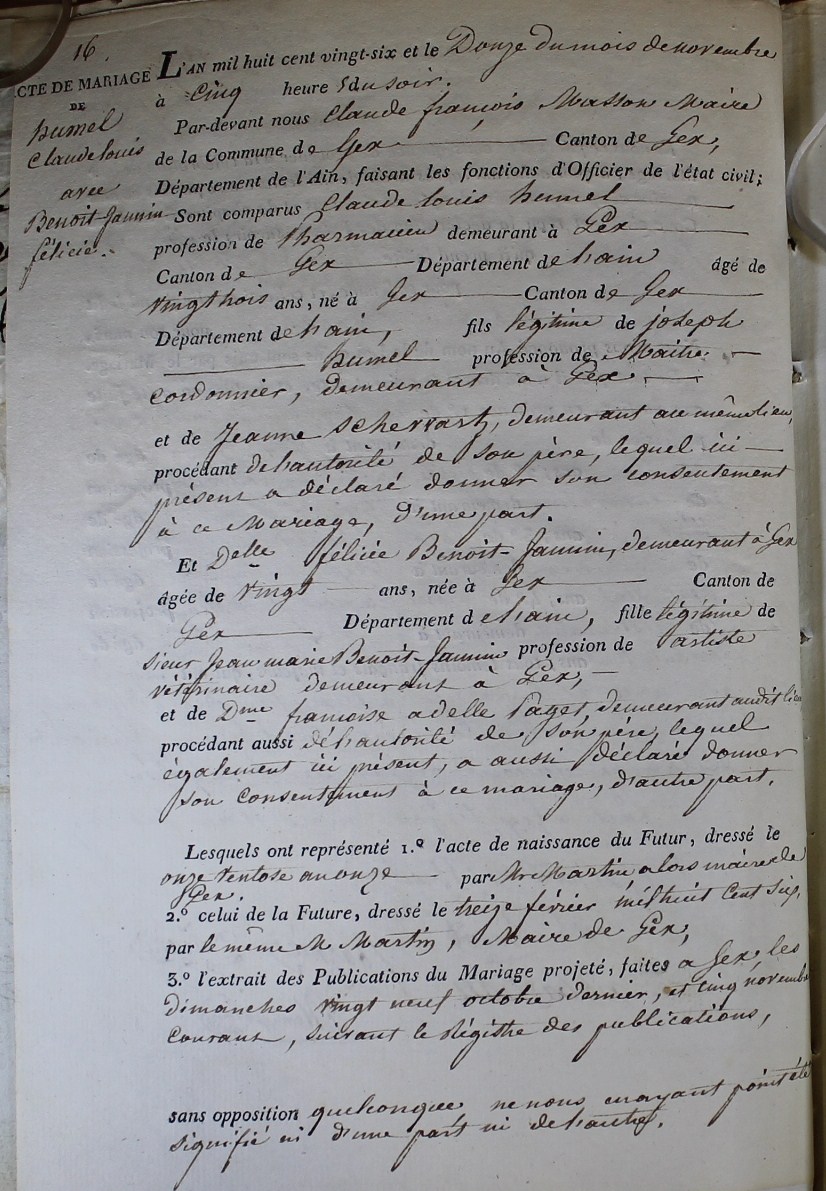 16.
ACTE DE MARIAGE
DE
humel
Claude louis
avec
Benoit-Jannin
félicie.
L'AN mil huit cent vingt-six et le Douze du mois de novembre
à Cinq heures du soir.
Par-devant nous Claude françois Masson Maire
de la Commune de Gex Canton de Gex,
Département de l'Ain, faisant les fonctions d'Officier de l'état civil;
Sont comparus Claude louis humel
profession de Pharmacien demeurant à Gex
Canton de Gex Département de l'ain âgé de
vingt trois ans, né à Gex Canton de Gex
Département de l'ain, fils légitime de joseph
humel profession de Maitre
cordonnier, demeurant à Gex
et de Jeanne Schervartz, demeurant au même lieu,
procédant de l'autorité de son père, lequel ici
présent a déclaré donner son consentement
à ce Mariage, d'une part.
Et Delle félicie Benoit-Jannin, demeurant à Gex
âgée de vingt ans, née à Gex Canton de
Gex Département de l'ain, fille légitime de
sieur Jean marie Benoit-Jannin profession de artiste
vétérinaire demeurant à Gex,
et de Dme françoise adelle Paget, demeurant audit lieu
procédant aussi de l'autorité de son père, lequel
également ici présent, a aussi déclaré donner
son consentement à ce mariage, d'autre part.
Lesquels ont représenté 1.º l'acte de naissance du Futur, dressé le
onze ventose an onze par Mr Martin alors maire de
Gex.
2.º celui de la Future, dressé le treize février mil huit cent six,
par le même M Martin, Maire de Gex,
3.º l'extrait des Publications du Mariage projeté, faites a Gex, les
dimanches vingt neuf octobre dernier, et cinq novembre
courant, suivant le Régistre des publications,
sans opposition quelconque ne nous en ayant point été
signifié ni d'une part ni de l'autre.